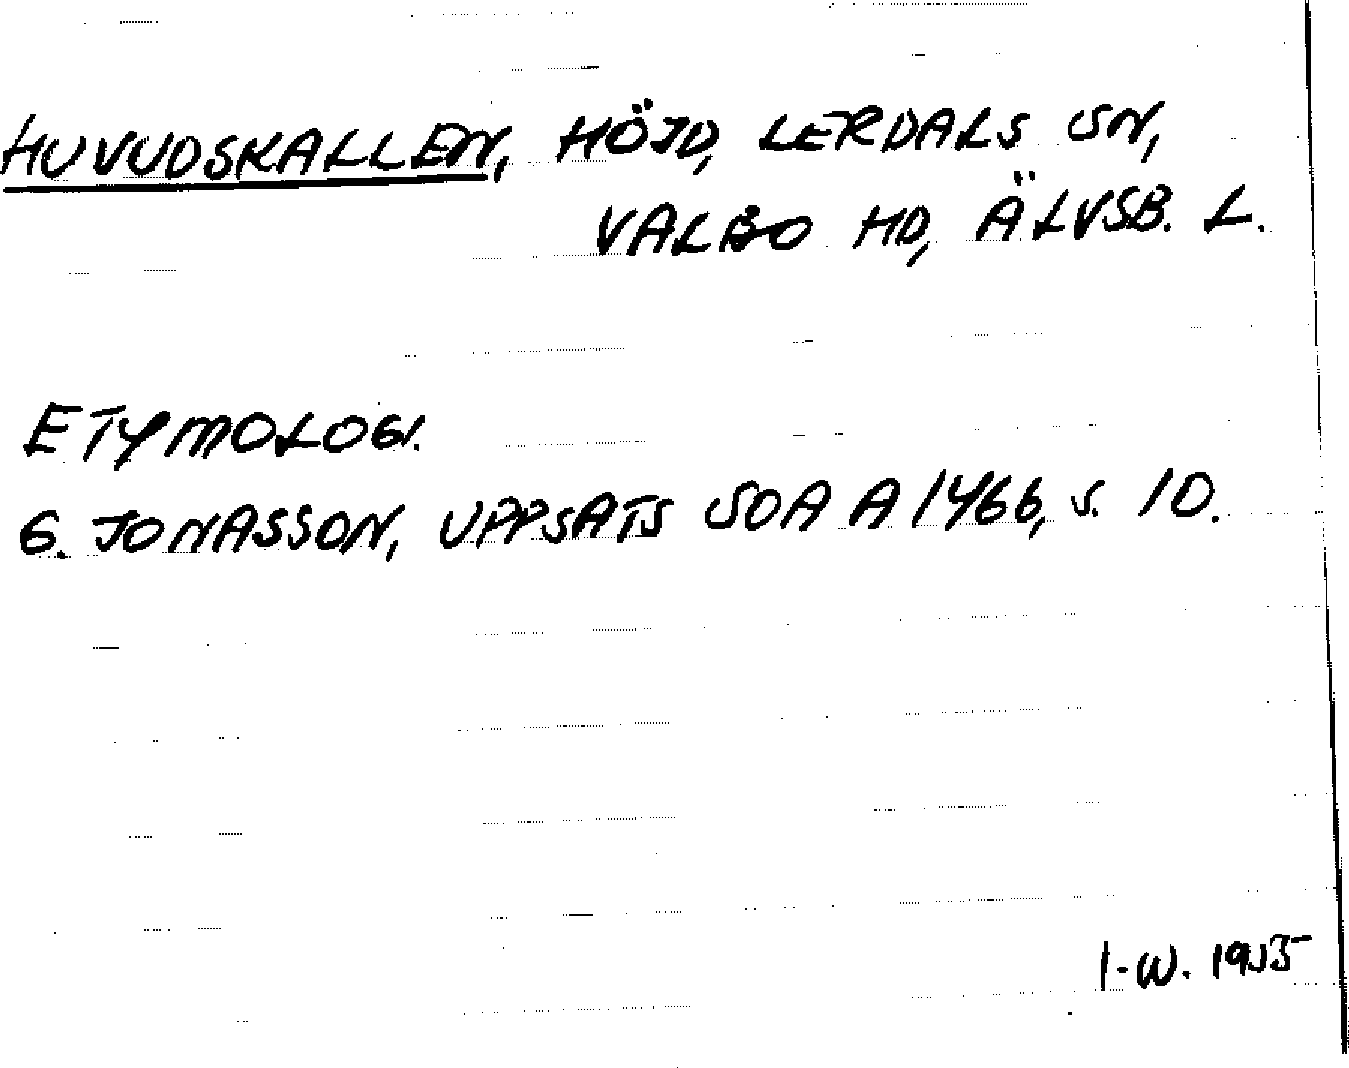 HUVUDSKALLEN, HÖJD, LERDALS SN,
VALBO HD, ÄLVSB. L.
ETYMOLOGI.
G. JONASSON, UPPSATS SOA A 1466, S. 10.
I-W. 1955